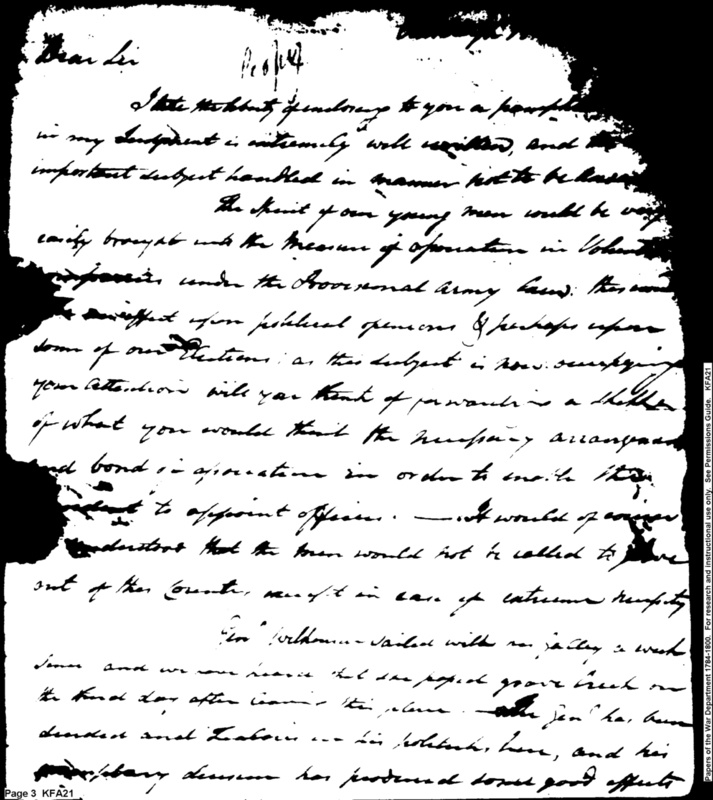 Dear Sir
I take the liberty of enclosing to you a pamphlet
in my Judgment is extremely well written, and the
important subject handled in manner not to be
The Spirit of our young men would be very
easily brought into the measure of association in Volunt
under the Provisional Army Law: this
effect upon political opinions & perhaps upon
some of our Elections: as this subject is now occupying
your attention will you think of forwarding a
of what you would think the necessary arrangem
and bond of association in order to enable the
to appoint officers. — It would of course
understood that the men would not be called to serve
out of this Country except in case of extreme necessity
Genl Wilkinson sailed with galley a week
since and we have heard that she passed grave Creek on
the third day after leaving this place — The Genl has been
decided and in his politicks here, and his
decision has produced some good effects
Page 3 KFA21
Papers of the War Department 1784-1800. For research and instructional use only. See Permissions Guide. KFA21